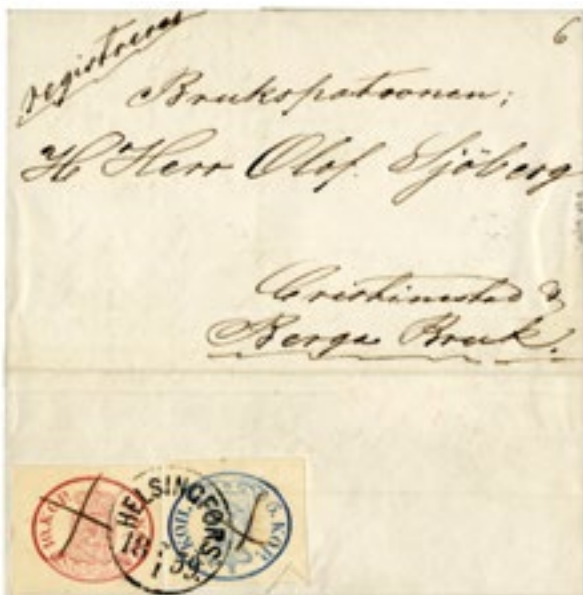 6
registreras
Brukspatronen;
H Herr Olof. Sjöberg
Cristinestad &
Berga Bruk.
10. KOP.
HELSINGFORS.
18 7/1 59.
5. KOP.